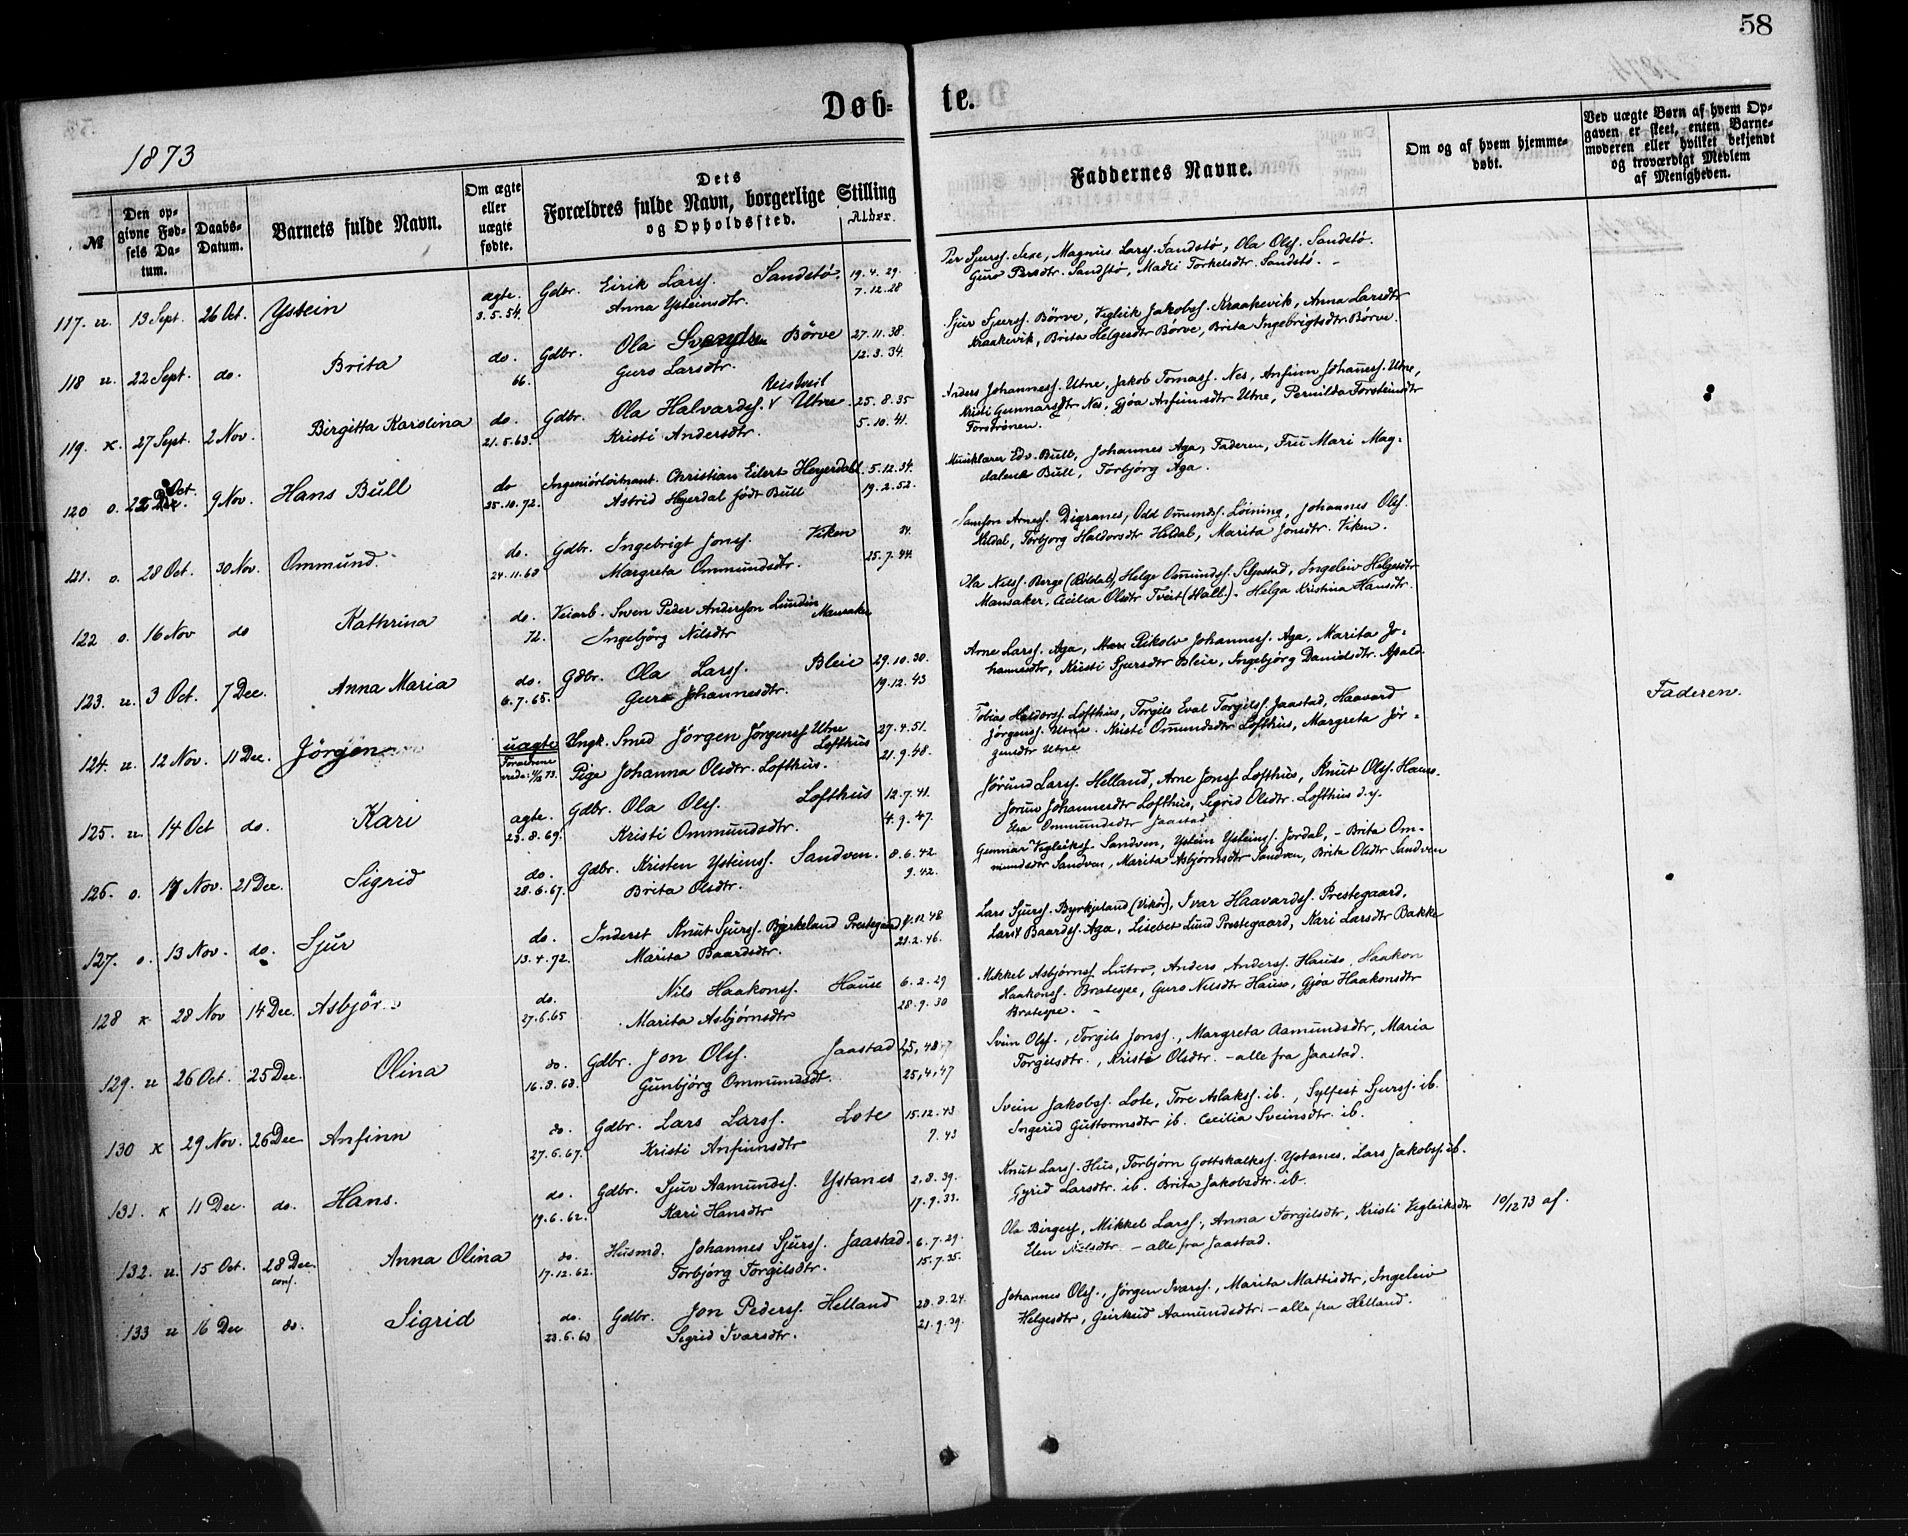 58
Døb-
te.
1873
№
Den op-
givne Fød-
sels Da-
tum.
Daabs-
Datum.
Barnets fulde Navn.
Om ægte
eller
uægte
fødte.
Dets
Forældres fulde Navn, borgerlige Stilling
og Opholdssted.
Alder.
Faddernes Navne.
Om og af hvem hjemme-
døbt.
Ved uægte Børn af hvem Op-
gaven er skeet, enten Barne-
moderen eller hvilket bekjendt
og troværdigt Medlem
af Menigheden.
117. u. 13 Sept. 26 Oct. Ystein ægte. Gdbr. Eirik Larss. Sandstø. 19.4.29.
3.5.54. Anna Ysteinsdtr. 7.12.28
Per Sjurss. Sexe, Magnus Larss. Sandstø, Ola Olss. Sandstø.
Guro Persdtr. Sandstø, Madli Torkelsdtr. Sandstø. -
118 u. 22 Sept. do. Brita do. Gdbr. Ola Børve 27.11.38.
66. Guro Larsdtr. 12.3.34.
Sjur Sjurss. Børve, Vegleik Jakobss. Kraakevik, Anna Larsdtr
Kraakevik, Brita Helgesdtr Børve, Brita Ingebrigtsdtr. Børve.
119. x. 27 Sept. 2 Nov. Birgitta Karolina do. Gdbr. Ola Halvardss. Utne. 25.8.35
21.5.63. Kristi Andersdtr. 5.10.41.
Anders Johanness. Utne, Jakob Tomass. Nes, Anfinn Johanness. Utne,
Kristi Gunnarsdtr Nes, Gjøa Anfinnsdtr Utne, Pernilda Torsteinsdtr
120 o. 25 Oct. 9 Nov. Hans Bull do Ingeniørløitnant. Christian Eilert Heyerdahl. 5.12.34.
25.10.72. Astrid Heyerdal født Bull 19.2.52.
Musiklærer Edv. Bull, Johannes Aga, Faderen, Fru Mari Mag-
dalena Bull, Torbjørg Aga.
121. o. 28 Oct. 30 Nov. Ommund. do. Gdbr. Ingebrigt Jonss. Viken 24.
24.11.68 Margreta Ommundsdtr. 25.7.44.
Samson Arness. Digranes, Odd Omundss. Løining, Johannes Olss.
Hildal, Torbjørg Haldorsdtr Hildal, Marita Jonsdtr. Viken.
122 o. 16 Nov do Kathrina do. Veiarb. Sven Peder Andersson Lundin Mansaker
72. Ingebjørg Nilsdtr
Ola Nilss. Berge (Røldal), Helge Omundss. Seljestad, Ingeleiv Helgesdtr
Mansaker, Cecilia Olsdtr Tveit (Hall.). Helga Kristina Hansdtr.
123. u. 3 Oct. 7 Dec. Anna Maria do. Gdbr. Ola Larss. Bleie 29.10.30.
6.7.65. Guro Johannesdtr. 19.12.43
Arne Larss. Aga, Rikolv Johanness. Aga, Marita Jo-
hannesdtr, Kristi Sjursdtr Bleie, Ingebjørg Danielsdtr. Apald.
124. u. 12 Nov. 11 Dec. Jörgen uægte Ungk. Smed Jørgen Jørgenss Utne 27.4.51.
Lofthus
Pige Johanna Olsdtr. Lofthus. 21.9.48.
Tobias Haldorss. Lofthus, Torgils Torgilss. Jaastad, Haavard
Jørgenss. Utne. Kristi Omundsdtr Lofthus, Margreta Jør-
gensdtr Utne
Faderen.
125. u. 14 Oct do. Kari ægte. Gdbr. Ola Olss. Lofthus 12.7.41.
23.8.69. Kristi Ommundsdtr. 4.9.47.
Jørund Larss. Helland, Arne Jonss Lofthus, Knut Olss. Haus.
Jorun Johannesdtr Lofthus, Sigrid Olsdtr. Lofthus d.y.
Ommundsdtr Jaastad
126. o. 17 Nov. 21 Dec. Sigrid do. Gdbr. Kristen Ysteinss. Sandven. 8.6.42
28.6.67. Brita Olsdtr. 9.42.
Gunnar Vegleikss. Sandven, Ystein Ysteinss. Jordal, - Brita Om-
mundsdtr Sandven, Marita Asbjørnsdtr Sandven, Brita Olsdtr Sandven
127. o. 13 Nov. do. Sjur do. Inderst Knut Sjurss. Byrkeland Prestegaard
13.4.72. Marita Baardsdtr. 21.2.46.
Lars Sjurss. Byrkjeland (Vikør), Ivar Haavardss. Prestegaard,
Baardss. Aga, Lisebet Lund Prestegaard, Kari Larsdtr Bakke
128 x 28 Nov 14 Dec. Asbjør do. Nils Haakonss. Hause 6.2.29
27.6.65 Marita Asbjørnsdtr 28.9.30
Mikkel Asbjørnss. Lutro, Anders Anderss. Hauso, Haakon
Haakonss. Bratespe, Guro Nilsdtr Hauso, Gjøa Haakonsdtr
Bratespe. -
129. u 26 Oct. 25 Dec. Olina do. Gdbr. Jon Olss. Jaastad
16.3.68. Gunbjørg Ommundsdt. 25,4,47
Svein Olss., Torgils Jonss., Margreta Aamundsdtr, Maria
Torgilsdtr., Kristi Olsdtr. - alle fra Jaastad.
130 x 29 Nov. 26 Dec Anfinn do. Gdbr. Lars Larss. Lote 15.12.43
27.6.67. Kristi Anfinnsdtr 7.43
Svein Jakobss. Lote, Tore Aslakss. ib., Sylfest Sjurss. ib.
Ingerid Guttormsdtr ib. Cecilia Sveinsdtr. ib.
131. x 11 Dec. do. Hans. do. Gdbr. Sjur Aamundss. Ystanes 2.8.39.
19.6.62. Kari Hansdtr 17.9.33.
Knut Larss. Hus, Torbjørn Gottskalkss. Ystanes. Lars Jakobss. ib.
Gyrid Larsdtr. ib. Brita Jakobsdtr. ib.
132. u. 15 Oct. 28 Dec. Anna Olina do. Husmd. Johannes Sjurss. Jaastad. 6.7.29.
conf. 17.12.62. Torbjørg Torgilsdtr. 15.7.35.
Ola Birgerss, Mikkel Larss, Anna Torgilsdtr, Kristi Vegleiksdtr
Elen Nilsdtr. - alle fra Jaastad.
10/12 73 af.
133 u 16 Dec do. Sigrid do. Gdbr. Jon Pederss. Helland 28.8.24.
23.6.63 Sigrid Ivarsdtr. 21.9.29.
Johannes Olss., Jørgen Ivarss., Marita Mattisdtr, Ingeleiv
Helgesdtr, Geirtrud Aamundsdtr - alle fra Helland.